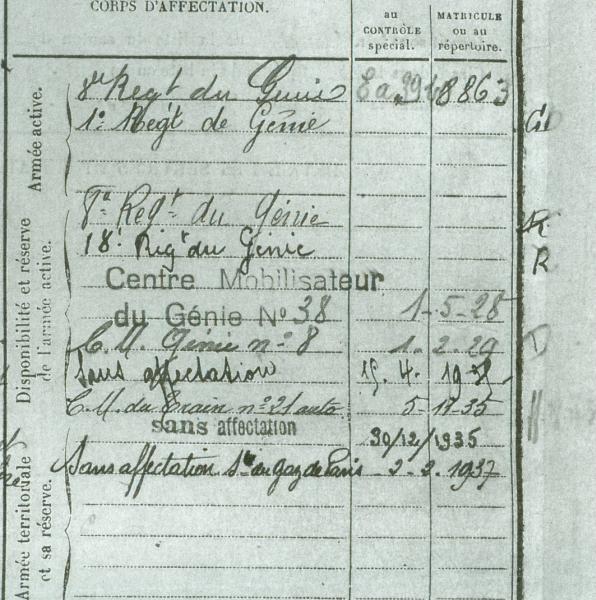 CORPS D'AFFECTATION.
au
CONTRÔLE
spécial.
MATRICULE
ou au
répertoire.
Armée active.
8e Regt du Génie 8863
1e Regt de Génie
Disponibilité et réserve
de l'armée active.
8e Regt du Génie
18e Rigt du Génie R
Centre Mobilisateur
du Génie No 38 1-5-28
C.M. Génie no 8 1.2.29 D
Sans affectation 15.4.
C.M. du Train no 21 auto 5-11-35
sans affectation 30/12/1935
Armée territoriale
et sa réserve.
Sans affectation Sté du gaz de Paris 2-2.1937